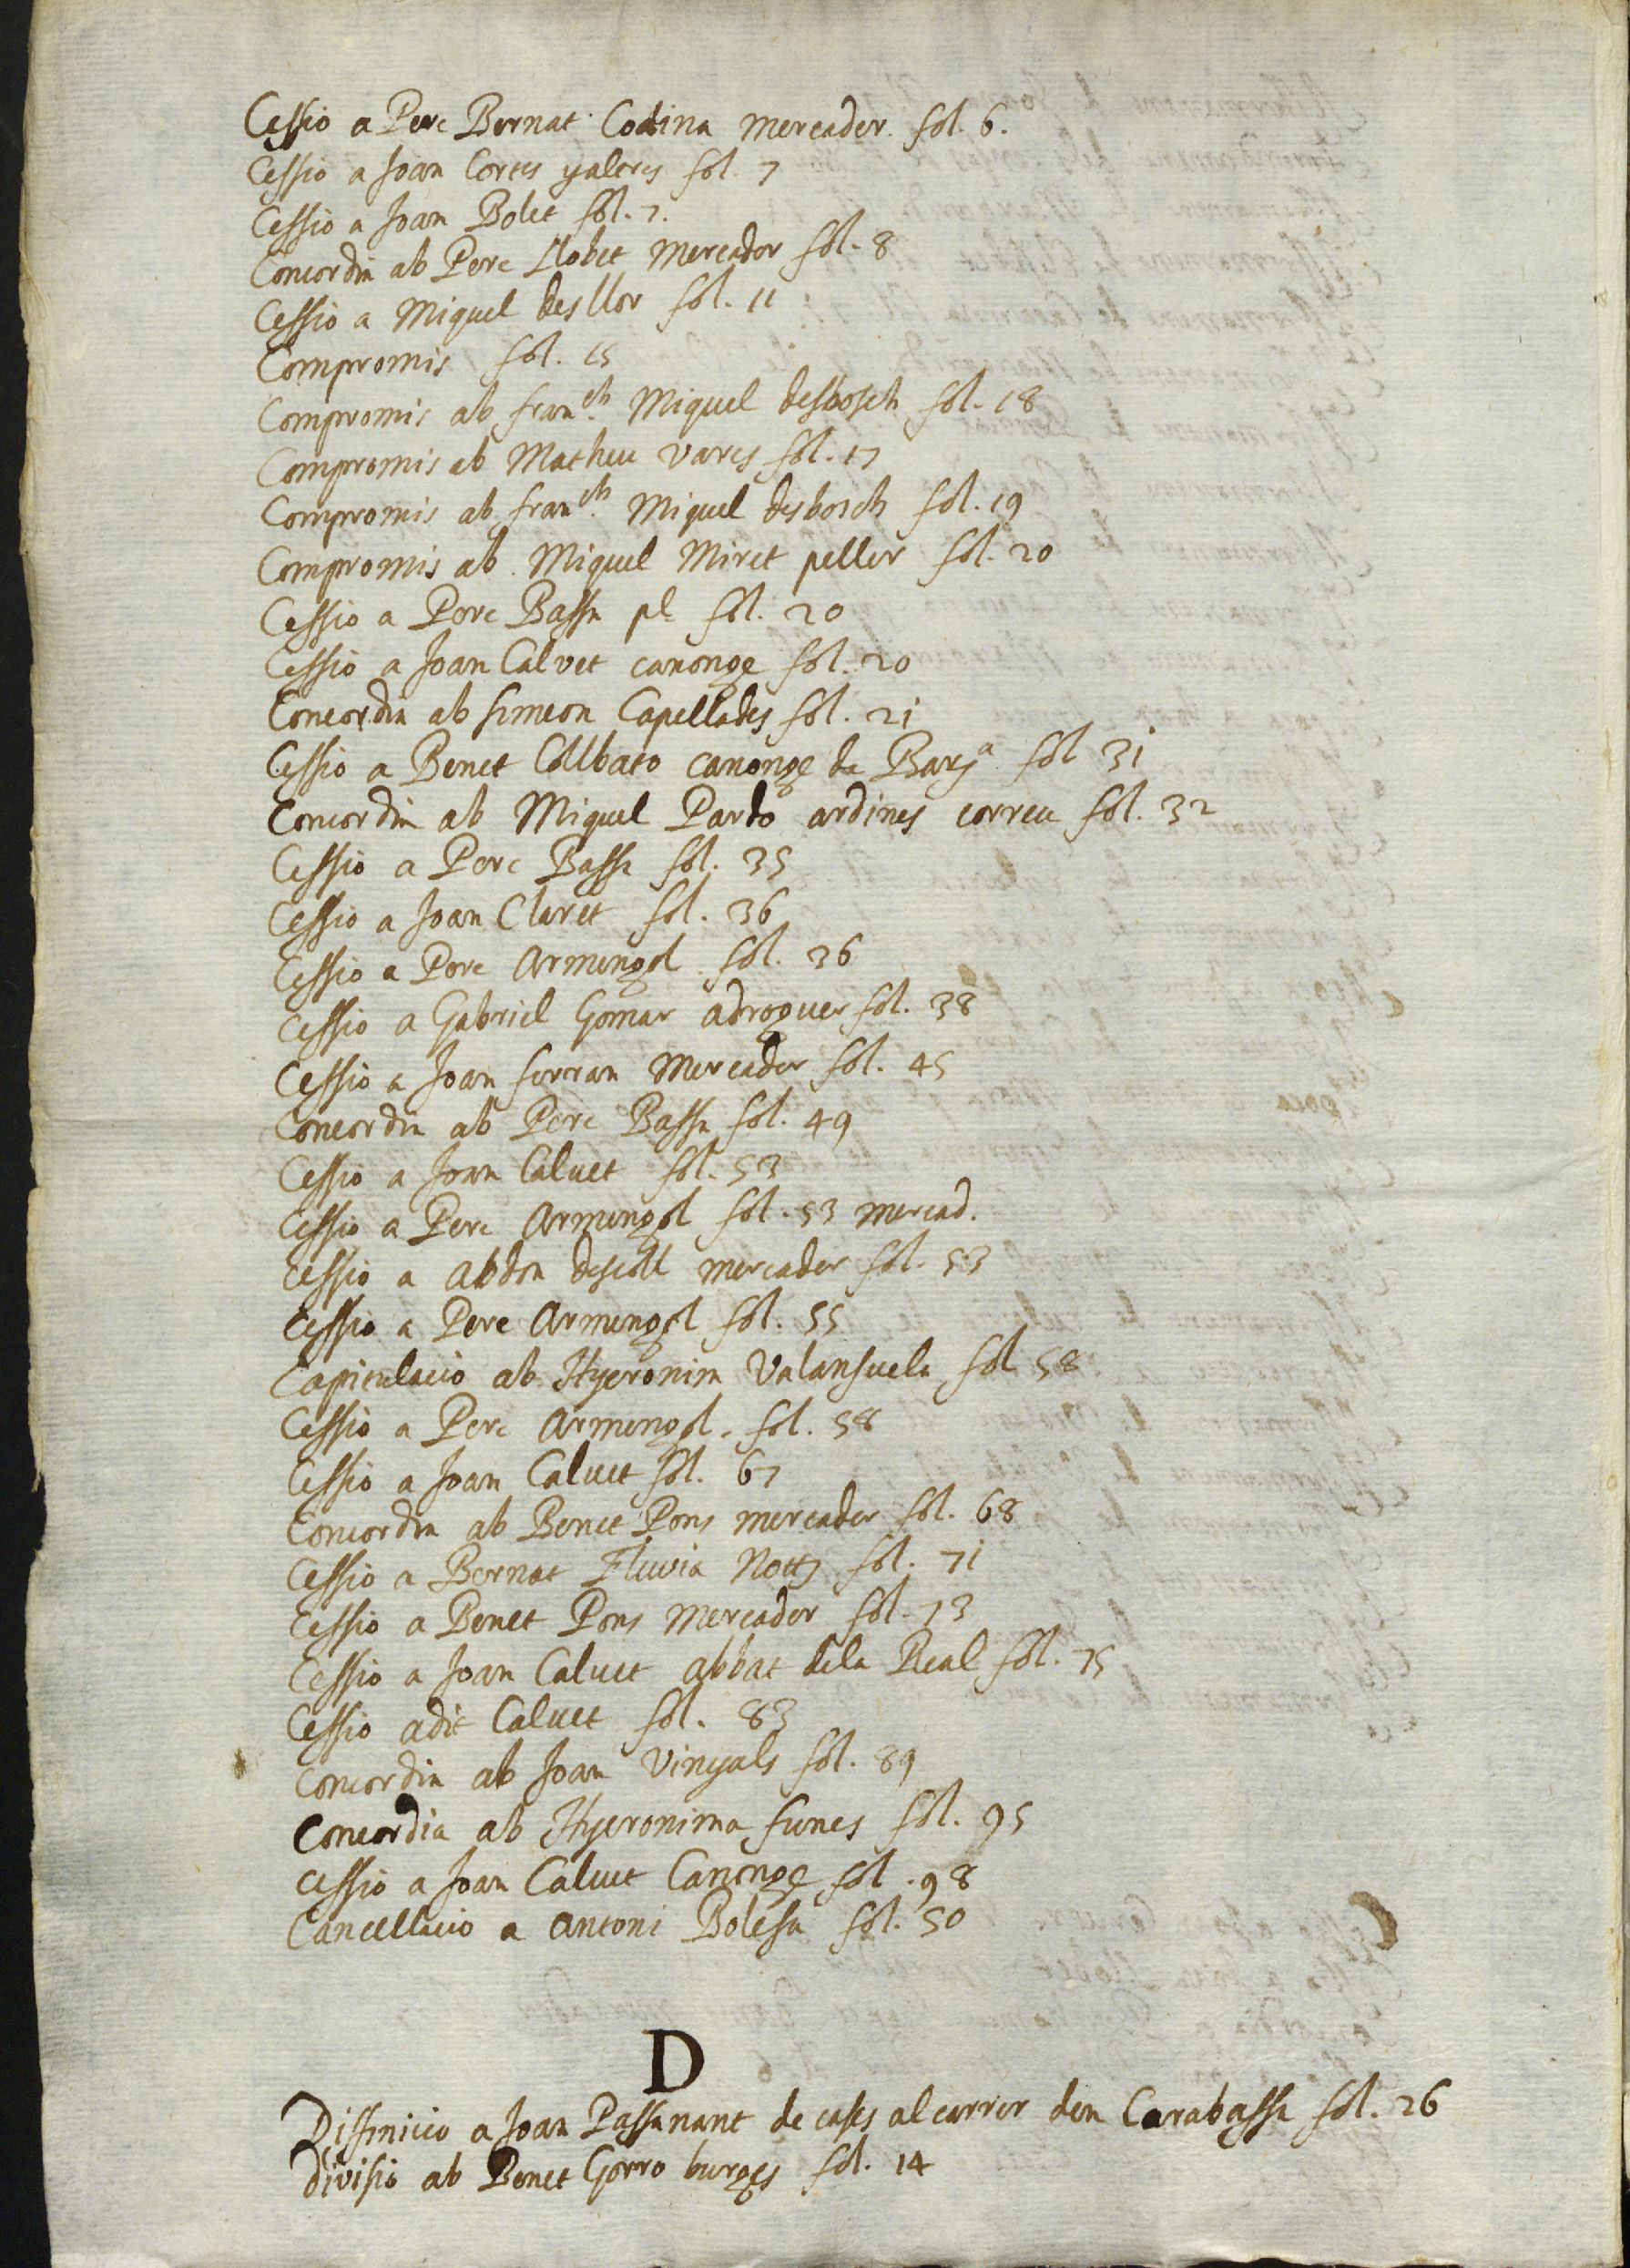 Cessio a Pere Bernat Codina mercader. fol. 6.
Cessio a Joan Cortes yaltres fol. 7
Cessio a Joan Bolet fol. 7.
Concordia ab Pere Llobet mercader fol. 8
Cessio a Miquel desllor fol. 11
Compromis fol. 15
Compromis ab fran.ch Miquel desbosch fol. 18
Compromis ab Matheu vares fol. 17
Compromis ab fran.ch Miquel desbosch fol. 19
Compromis ab Miquel Miret peller fol. 20
Cessio a Pere Bassa fol. 20
Cessio a Joan Calvet canonge fol. 20
Concordia ab simeon Capellades fol. 21
Cessio a Benet Collbato canonge de Barᵃ fol 31
Concordia ab Miquel Pardo ardines correu fol. 32
Cessio a Pere Bassa fol. 35
Cessio a Joan Claret fol. 36
Cessio a Pere Armengol fol. 36
Cessio a Gabriel Gomar adroguer fol. 38
Cessio a Joan ferran Mercader fol. 45
Concordia ab Pere Bassa fol. 49
Cessio a Joan Calvet fol. 53
Cessio a Pere Armengol fol. 53 mercad.
Cessio a abdon descoll mercader fol. 53
Cessio a Pere Armengol fol. 55
Capitulacio ab Hyeronim Valansuela fol 58
Cessio a Pere Armengol. fol. 58
Cessio a Joan Calvet fol. 67
Concordia ab Benet Pons mercader fol. 68
Cessio a Bernat Fluvia Nott fol. 71
Cessio a Benet Pons Mercader fol. 73
Cessio a Joan Calvet abbat dela Real fol. 75
Cessio adit Calvet fol. 83
Concordia ab Joan Vinyals fol. 89
Concordia ab Hyeronima funes fol. 95
Cessio a Joan Calvet Canonge fol. 98
Cancellacio a Antoni Bolesa fol. 50
D
Diffinicio a Joan Passanant de cases al carrer den Carabassa fol. 26
divisio ab Benet Gorro burges fol. 14